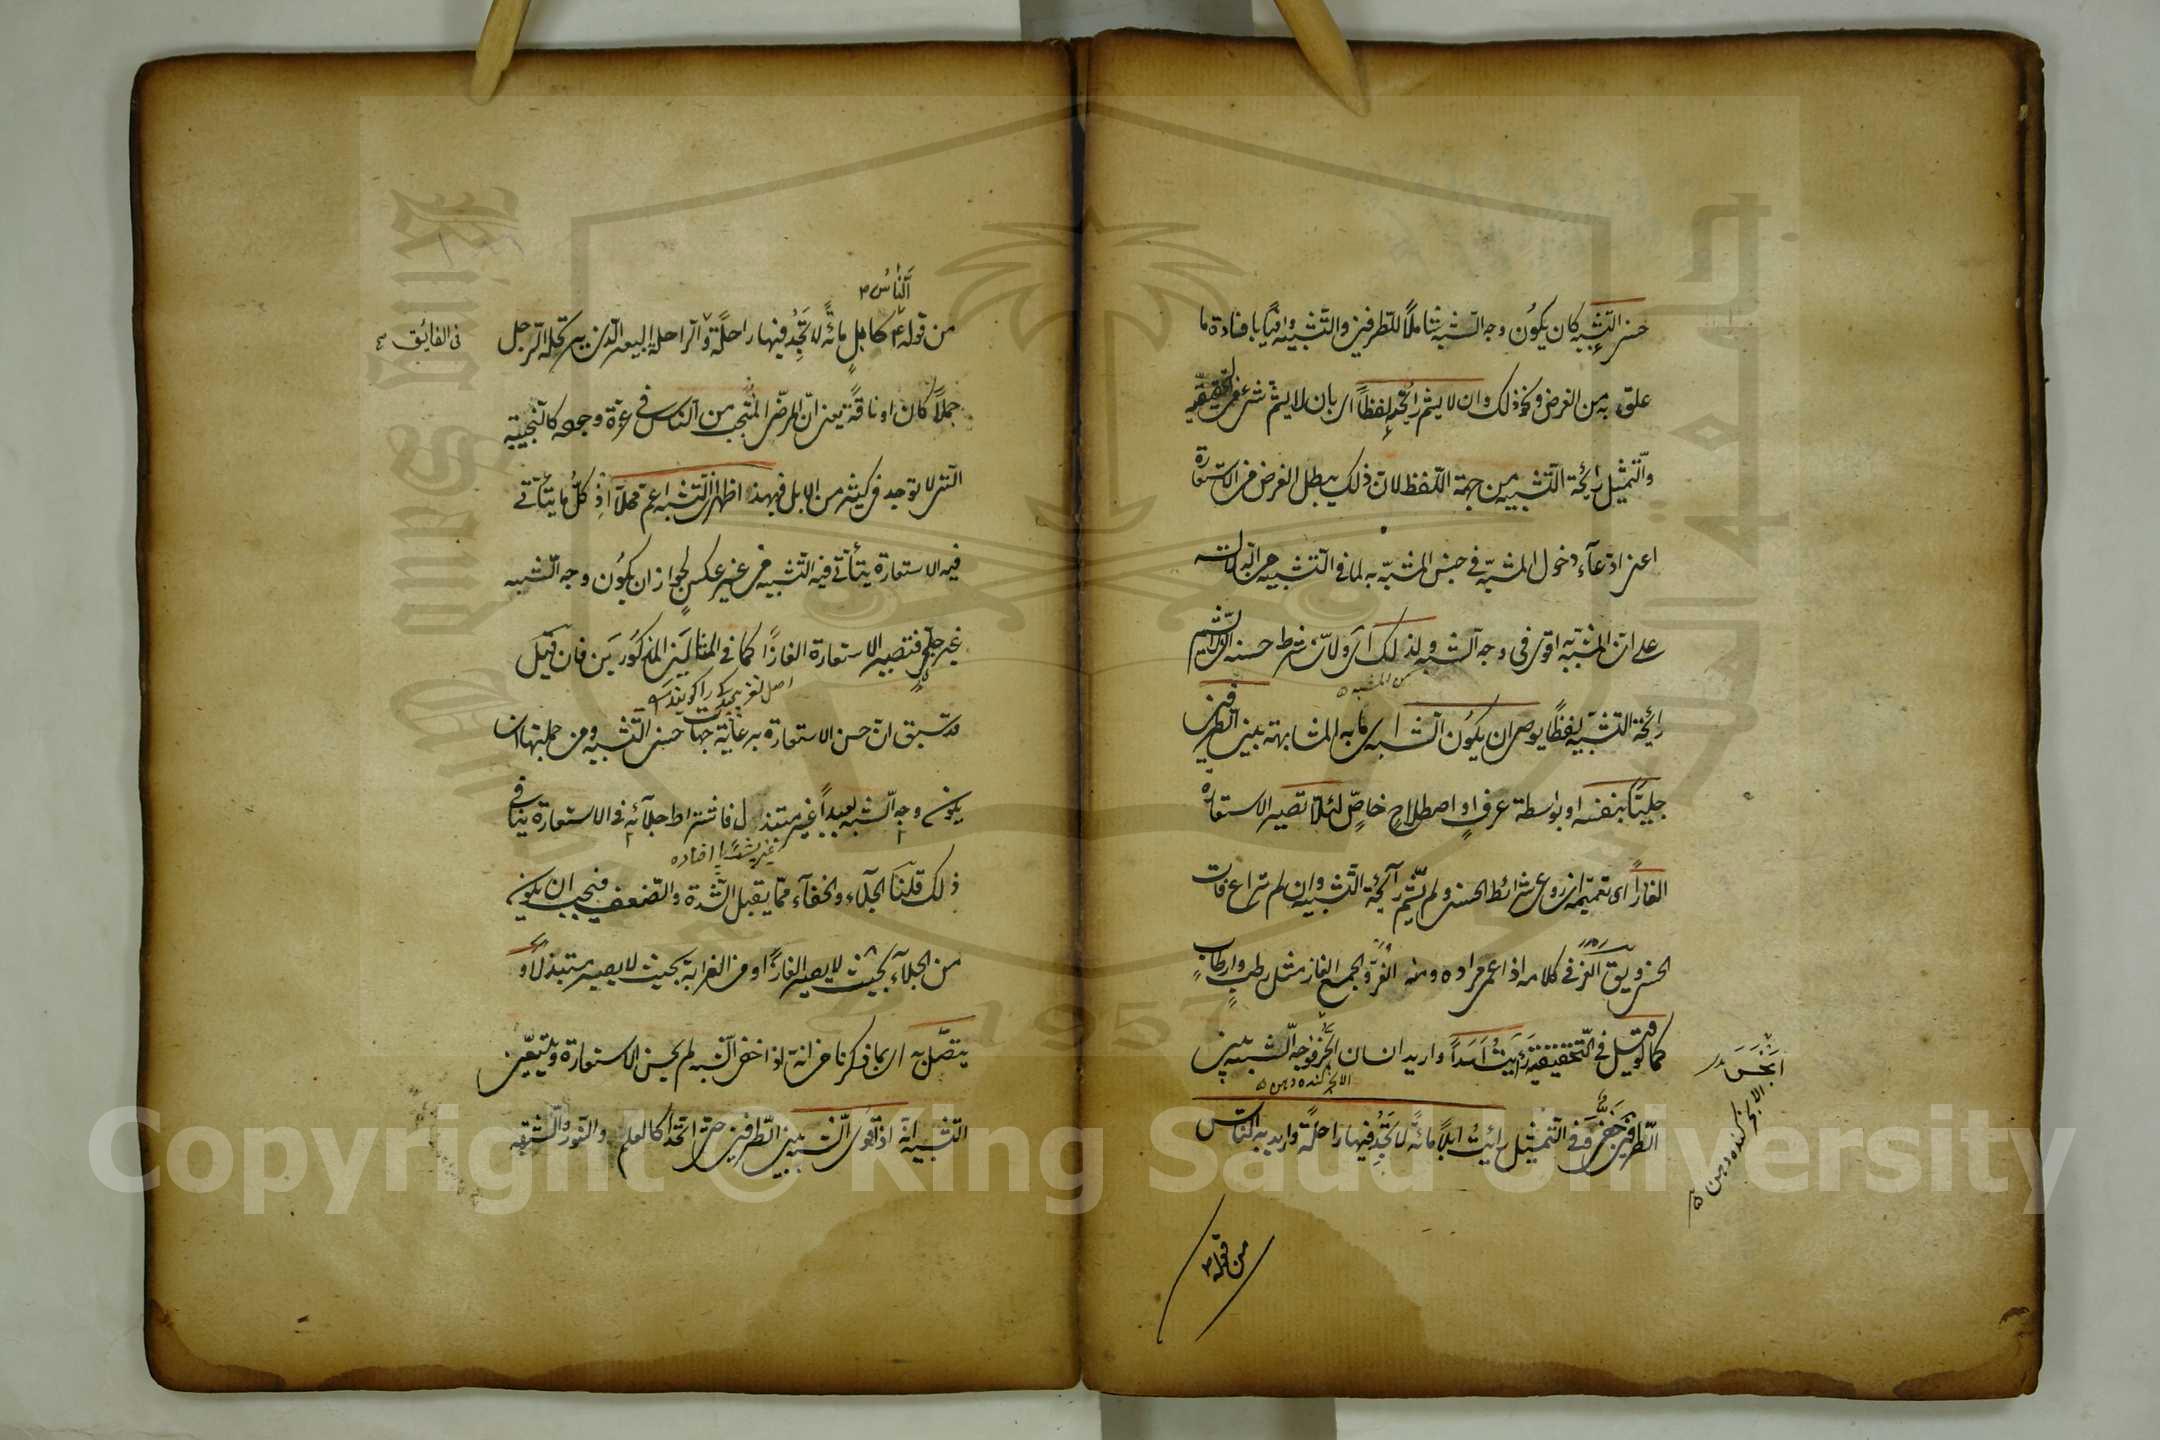 حسن التشبيه كان يكون وجه الشبه شاملا للطرفين والتشبيه وافيا بافادة ما
علق به من الغرض ونحو ذلك وان لا يشم رائحته لفظاً اى بان لا يشم شئ من التحقيقية
والتمثيل رائحة التشبيه من جهة اللفظ لان ذلك يبطل الغرض من الاستعارة
اعنى ادعاء دخول المشبه فى جنس المشبه به لما فى التشبيه من الدلالة
على ان المشبه به اقوى فى وجه الشبه ولذلك اى ولان شرط حسنه ان لا يشم
رائحة التشبيه لفظاً يوصى ان يكون الشبه اى ما به المشابهة بين الطرفين
جلياً بنفسه او بواسطة عرف او اصطلاح خاص لئلا تصير الاستعارة
الغازاً اى تعمية ان روعى شرائط الحسن ولم يشم رائحة التشبيه وان لم تراع فات
الحسن ويق الغز فى كلامه اذا عمى مراده ومنه اللغز والجمع الغاز مثل رطب وارطاب
كما لو قيل فى التحقيقية رأيت اسداً واريد انسان ابخر فوجه الشبه بين
الابخر كنده دهن
الطرفين خفى وفى التمثيل رأيت ابلاً مائة لا تجد فيها راحلة واريد به الناس
الابخر كنده دهن
من قوله
الناس
من قوله ع كابل مائة لا تجد فيها راحلة والراحلة البعير الذى يرتحله الرجل
فى الفائق
جملاً كان او ناقة يعنى ان المرضى المنتجب من الناس فى عزة وجوده كالنجيبة
التى لا توجد فى كثير من الابل فبهذا ظهر ان التشبيه اعم محلاً اذ كل ما يتأتى
فيه الاستعارة يتأتى فيه التشبيه من غير عكس لجواز ان يكون وجه الشبه
غير جلى فتصير الاستعارة الغازاً كما فى المثالين المذكورين فان قيل
قد سبق ان حسن الاستعارة برعاية جهات حسن التشبيه ومن جملتها ان
يكون وجه الشبه بعيداً غير مبتذل فاشتراط جلائه فى الاستعارة ينافى
ذلك قلنا الجلاء والخفاء مما يقبل الشدة والضعف فيجب ان يكون
من الجلاء بحيث لا يصير الغازاً ومن الغرابة بحيث لا يصير مبتذلاً و
يتصل به اى بما ذكرنا من انه اذا خفى الشبه لم يحسن الاستعارة ويتعين
التشبيه انه اذا قوى الشبه بين الطرفين حتى اتحدا كالعلم والنور والشبهة